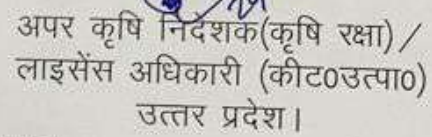 अपर कृषि निदेशक(कृषि रक्षा) /
लाइसेंस अधिकारी (कीट0उत्पा0)
उत्तर प्रदेश।